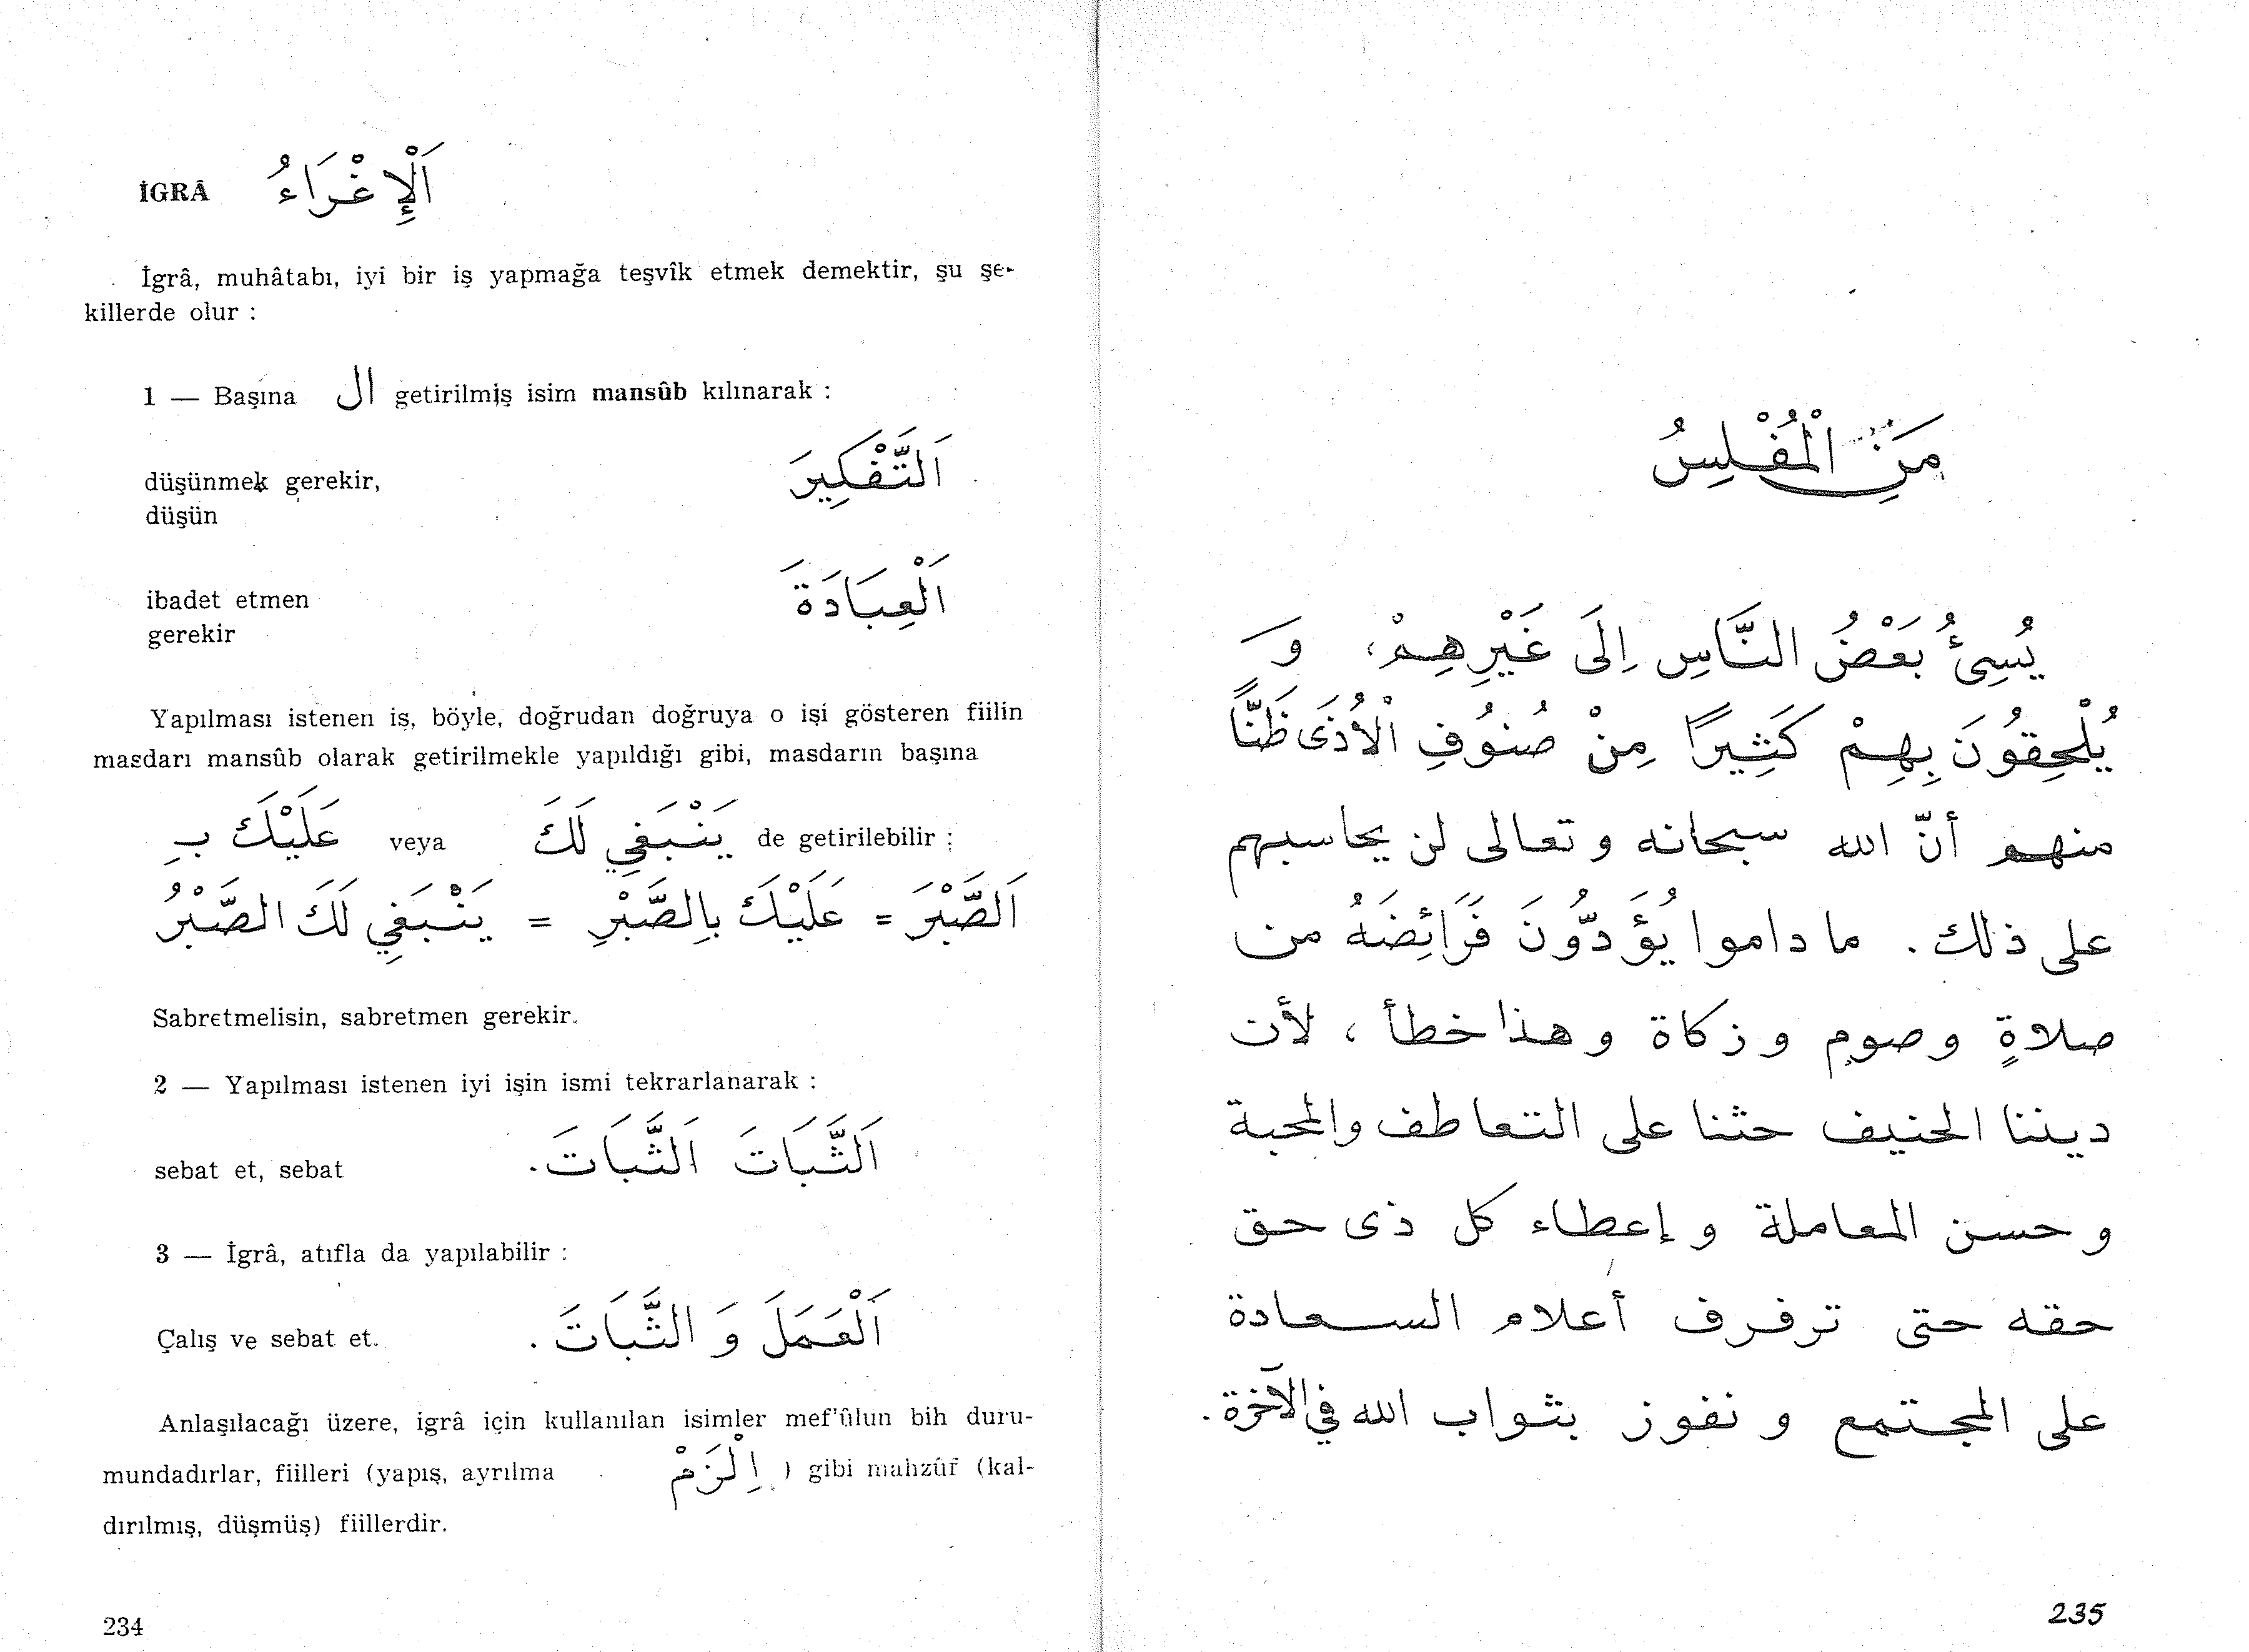 İGRÂ اَلْإِغْرَاءُ
İgrâ, muhâtabı, iyi bir iş yapmağa teşvîk etmek demektir, şu şe-
killerde olur :
1 — Başına ال getirilmiş isim mansûb kılınarak :
düşünmek gerekir, اَلتَّفْكِيرَ
düşün
ibadet etmen اَلْعِبَادَةَ
gerekir
Yapılması istenen iş, böyle, doğrudan doğruya o işi gösteren fiilin
masdarı mansûb olarak getirilmekle yapıldığı gibi, masdarın başına
عَلَيْكَ بِـ veya يَنْبَغِي لَكَ de getirilebilir :
اَلصَّبْرَ = عَلَيْكَ بِالصَّبْرِ = يَنْبَغِي لَكَ الصَّبْرُ
Sabretmelisin, sabretmen gerekir.
2 — Yapılması istenen iyi işin ismi tekrarlanarak :
sebat et, sebat اَلثَّبَاتَ اَلثَّبَاتَ.
3 — İgrâ, atıfla da yapılabilir :
Çalış ve sebat et. اَلْعَمَلَ وَ الثَّبَاتَ.
Anlaşılacağı üzere, igrâ için kullanılan isimler mef'ûlun bih duru-
mundadırlar, fiilleri (yapış, ayrılma اِلْزَمْ ) gibi mahzûf (kal-
dırılmış, düşmüş) fiillerdir.
234
مَنِ الْمُفْلِسُ
يُسِئُ بَعْضُ النَّاسِ اِلَى غَيْرِهِمْ، وَ
يُلْحِقُونَ بِهِمْ كَثِيرًا مِنْ صُنُوفِ الْأَذَى ظَنًّا
منهم أنّ الله سبحانه و تعالى لن يحاسبهم
على ذلك . ما داموا يُؤَدُّونَ فَرَائِضَهُ من
صلاةٍ و صومٍ و زكاة و هذا خطأ ، لأن
ديننا الحنيف حثنا على التعاطف والمحبة
و حسن المعاملة و إعطاء كل ذى حق
حقه حتى ترفرف أعلام السعادة
على المجتمع و نفوز بثواب الله في الآخرة.
235